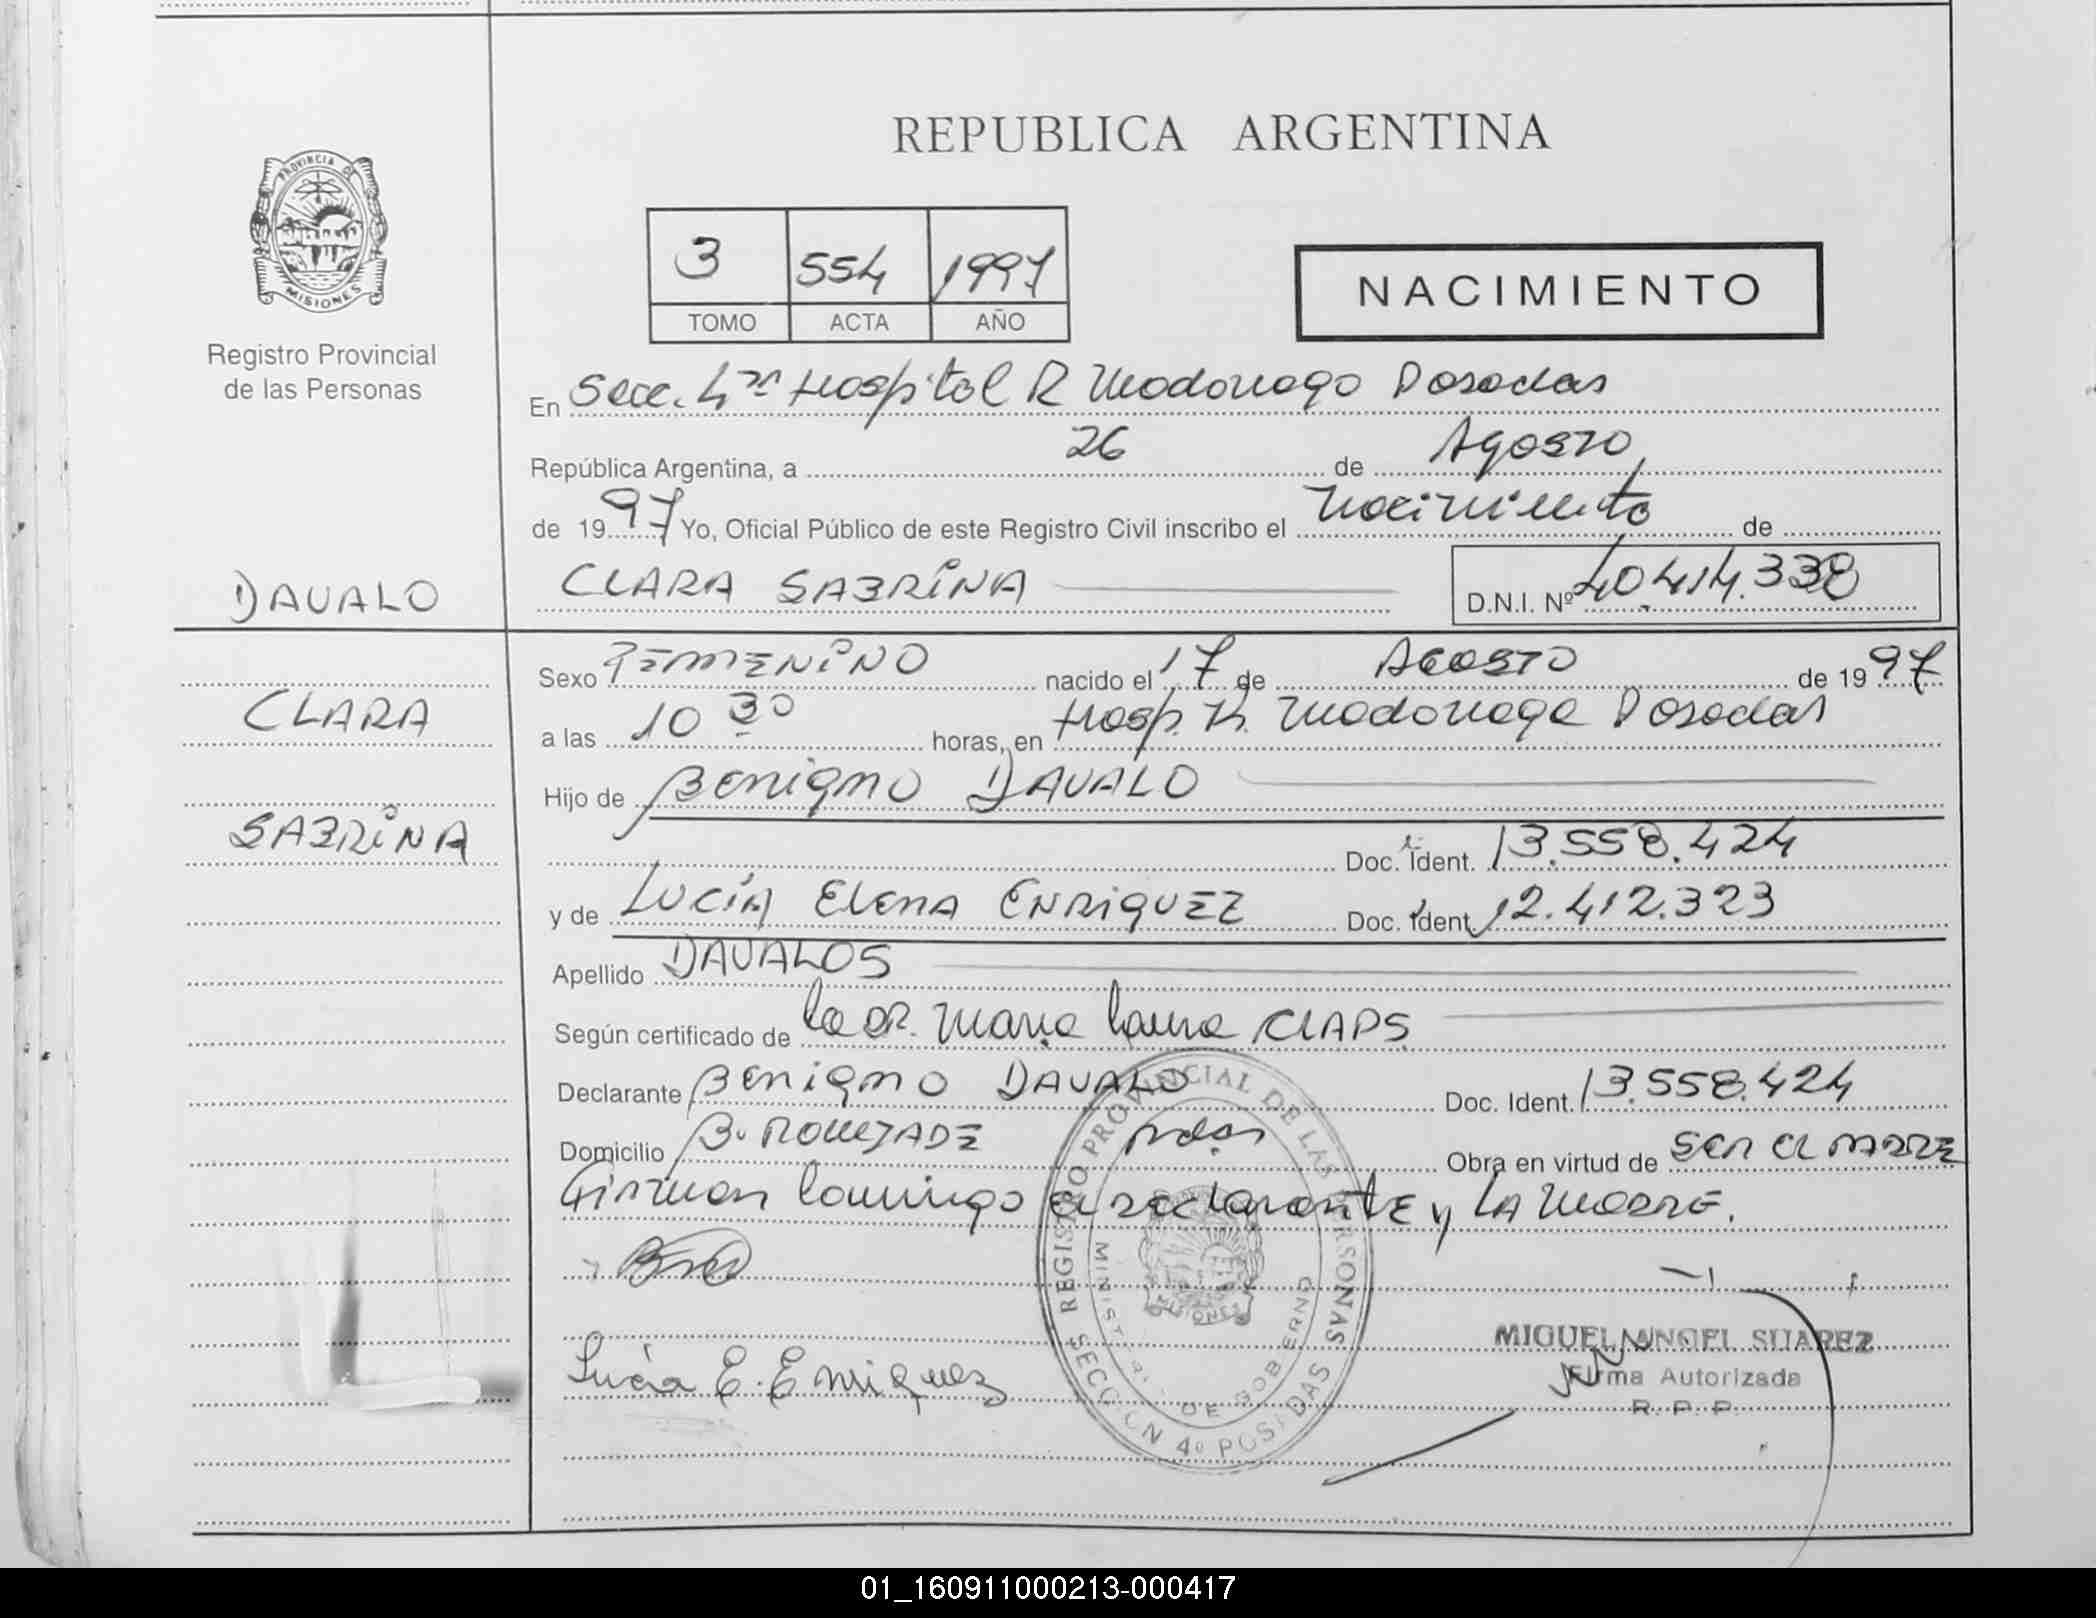 REPUBLICA ARGENTINA
PROVINCIA DE
MISIONES
Registro Provincial
de las Personas
3 554 1997
TOMO ACTA AÑO
NACIMIENTO
En Secc. 4ta Hospital R Madariaga Posadas
República Argentina, a 26 de Agosto
de 1997 Yo, Oficial Público de este Registro Civil inscribo el nacimiento de
DAVALO
CLARA SABRINA D.N.I. Nº 40.414.338
Sexo FEMENINO nacido el 17 de AGOSTO de 1997
CLARA
a las 10 30 horas, en Hosp. R. Madariaga Posadas
Hijo de Benigno DAVALO
SABRINA
Doc. Ident. 13.558.424
y de LUCÍA ELENA ENRIQUEZ Doc. Ident 12.412.323
Apellido DAVALOS
Según certificado de la DR. Maria Laura CLAPS
Declarante Benigno DAVALO Doc. Ident. 13.558.424
Domicilio B. Pdas. Obra en virtud de ser el PADRE
Firman conmigo el declarante y LA MADRE.
Lucía E. Enriquez
REGISTRO PROVINCIAL DE LAS PERSONAS
MINISTERIO DE GOBIERNO
MISIONES
SECCION 4º POSADAS
MIGUEL ANGEL SUAREZ
Firma Autorizada
R. P. P.
01_160911000213-000417